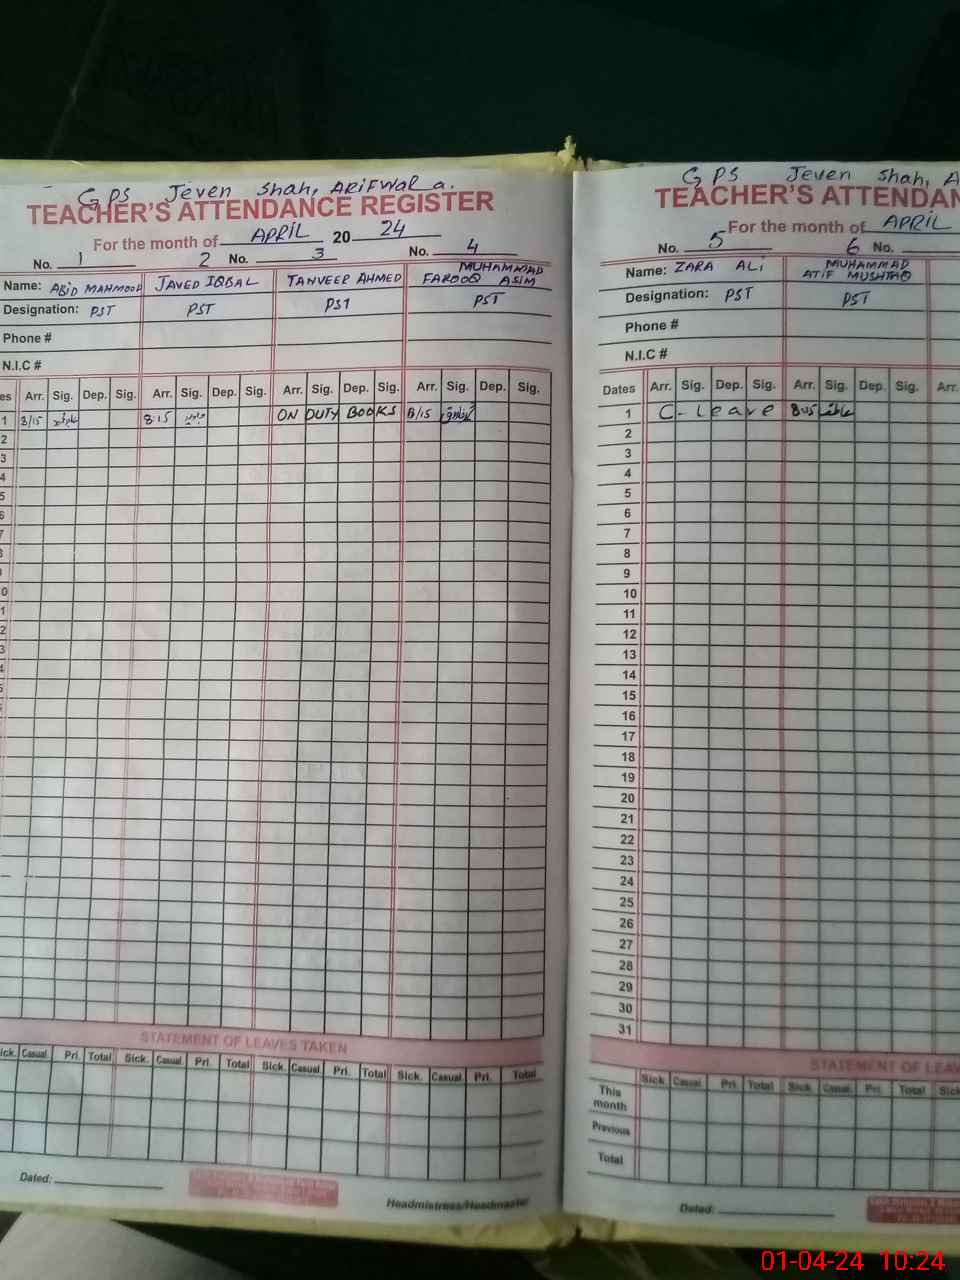 GPS Jeven Shah, ARIFWALa.
TEACHER'S ATTENDANCE REGISTER
For the month of APRIL 20 24
No. 1 2 No. 3 No. 4
Name: ABID MAHMOOD JAVED IQBAL TANVEER AHMED MUHAMMAD FAROOQ ASIM
Designation: PST PST PST PST
Phone #
N.I.C #
Arr. Sig. Dep. Sig. Arr. Sig. Dep. Sig. Arr. Sig. Dep. Sig. Arr. Sig. Dep. Sig.
1 8/15 8:15 ON DUTY BOOKS 8/15
2
3
4
5
6
7
8
STATEMENT OF LEAVES TAKEN
Sick. Casual Pri. Total Sick. Casual. Pri. Total Sick. Casual. Pri. Total Sick. Casual. Pri. Total
Dated:
Headmistress/Headmaster
GPS Jeven Shah, A
TEACHER'S ATTENDAN
For the month of APRIL
No. 5 6 No.
Name: ZARA ALi MUHAMMAD ATIF MUSHTAQ
Designation: PST PST
Phone #
N.I.C #
Dates Arr. Sig. Dep. Sig. Arr. Sig. Dep. Sig. Arr.
1 C-Leave 8:05
2
3
4
5
6
7
8
9
10
11
12
13
14
15
16
17
18
19
20
21
22
23
24
25
26
27
28
29
30
31
STATEMENT OF LEAV
Sick. Casual. Pri. Total Sick. Casual. Pri. Total Sick
This month
Previous
Total
Dated:
01-04-24 10:24